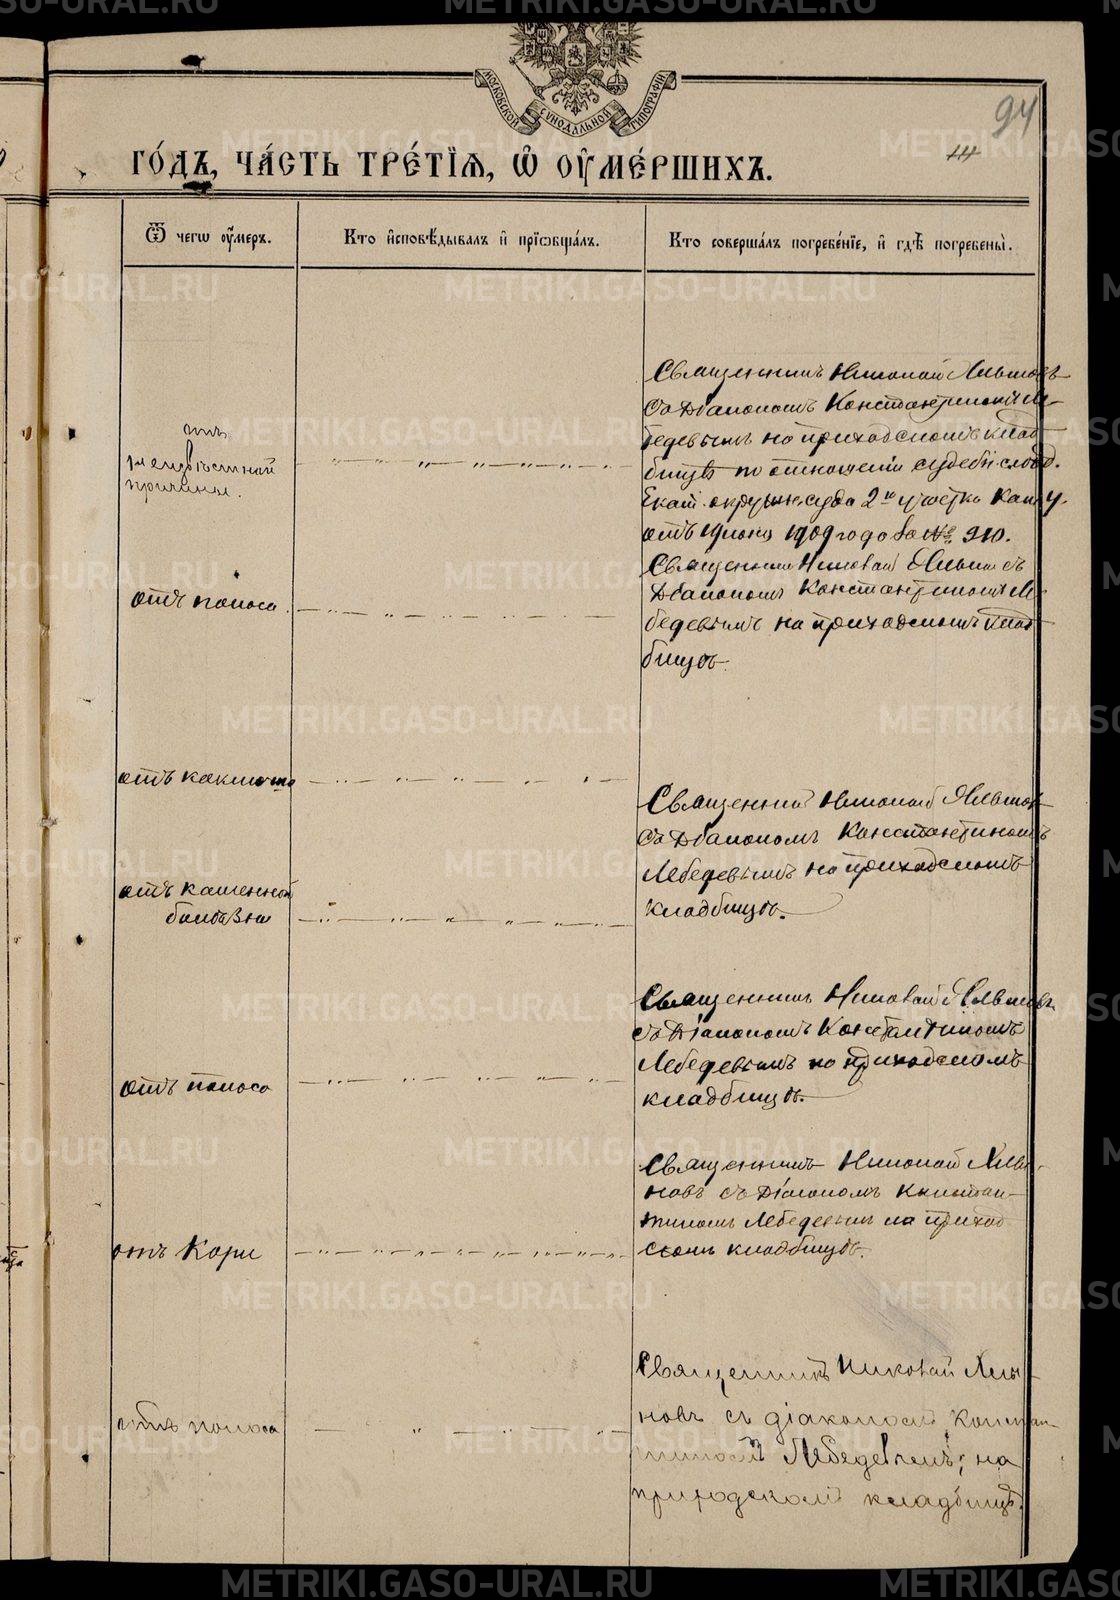 МОСКОВСКОЙ СѴНОДАЛЬНОЙ ТИПОГРАФІИ
94
го́дъ, ча́сть тре́тїѧ, ѡ҆ оу҆ме́ршихъ.
Ѿ чегѡ оу҆́меръ.
Кто и҆сповѣ́дывалъ и҆ прїѡбща́лъ.
Кто соверша́лъ погребе́нїе, и҆ гдѣ̀ погребены̀.
отъ
неизвѣстной
причины.
Священникъ Николай
съ Діакономъ Константиномъ Ле-
бедевымъ на приходскомъ клад-
бищѣ по отношенію судебн. слѣд.
Екат. окружн. суда 2го участка
отъ 1909 года за № 910.
отъ поноса.
Священникъ Николай съ
Діакономъ Константиномъ Ле-
бедевымъ на приходскомъ клад-
бищѣ.
отъ коклюша
Священникъ Николай
съ Діакономъ Константиномъ
Лебедевымъ на приходскомъ
кладбищѣ.
отъ каменной
болѣзни
Священникъ Николай
съ Діакономъ Константиномъ
Лебедевымъ на приходскомъ
кладбищѣ.
отъ поноса
Священникъ Николай
новъ съ Діакономъ Констан-
тиномъ Лебедевымъ на приход
скомъ кладбищѣ.
отъ Кори
Священникъ Николай
новъ съ діакономъ Констан-
тиномъ Лебедевымъ, на
приходскомъ кладбищѣ.
отъ поноса
METRIKI.GASO-URAL.RU